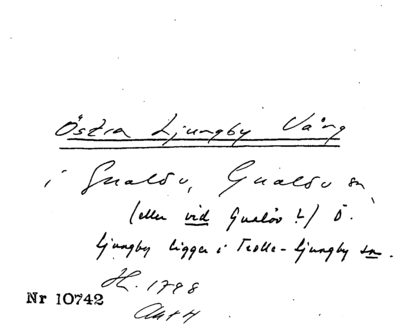 Östra Ljungby Vång
i Gualöv, Gualöv sn,
(eller vid Gualöv ?) Ö.
Ljungby ligger i Trolle-Ljungby sn.
H. 1798
Nr 10742
Akt 4